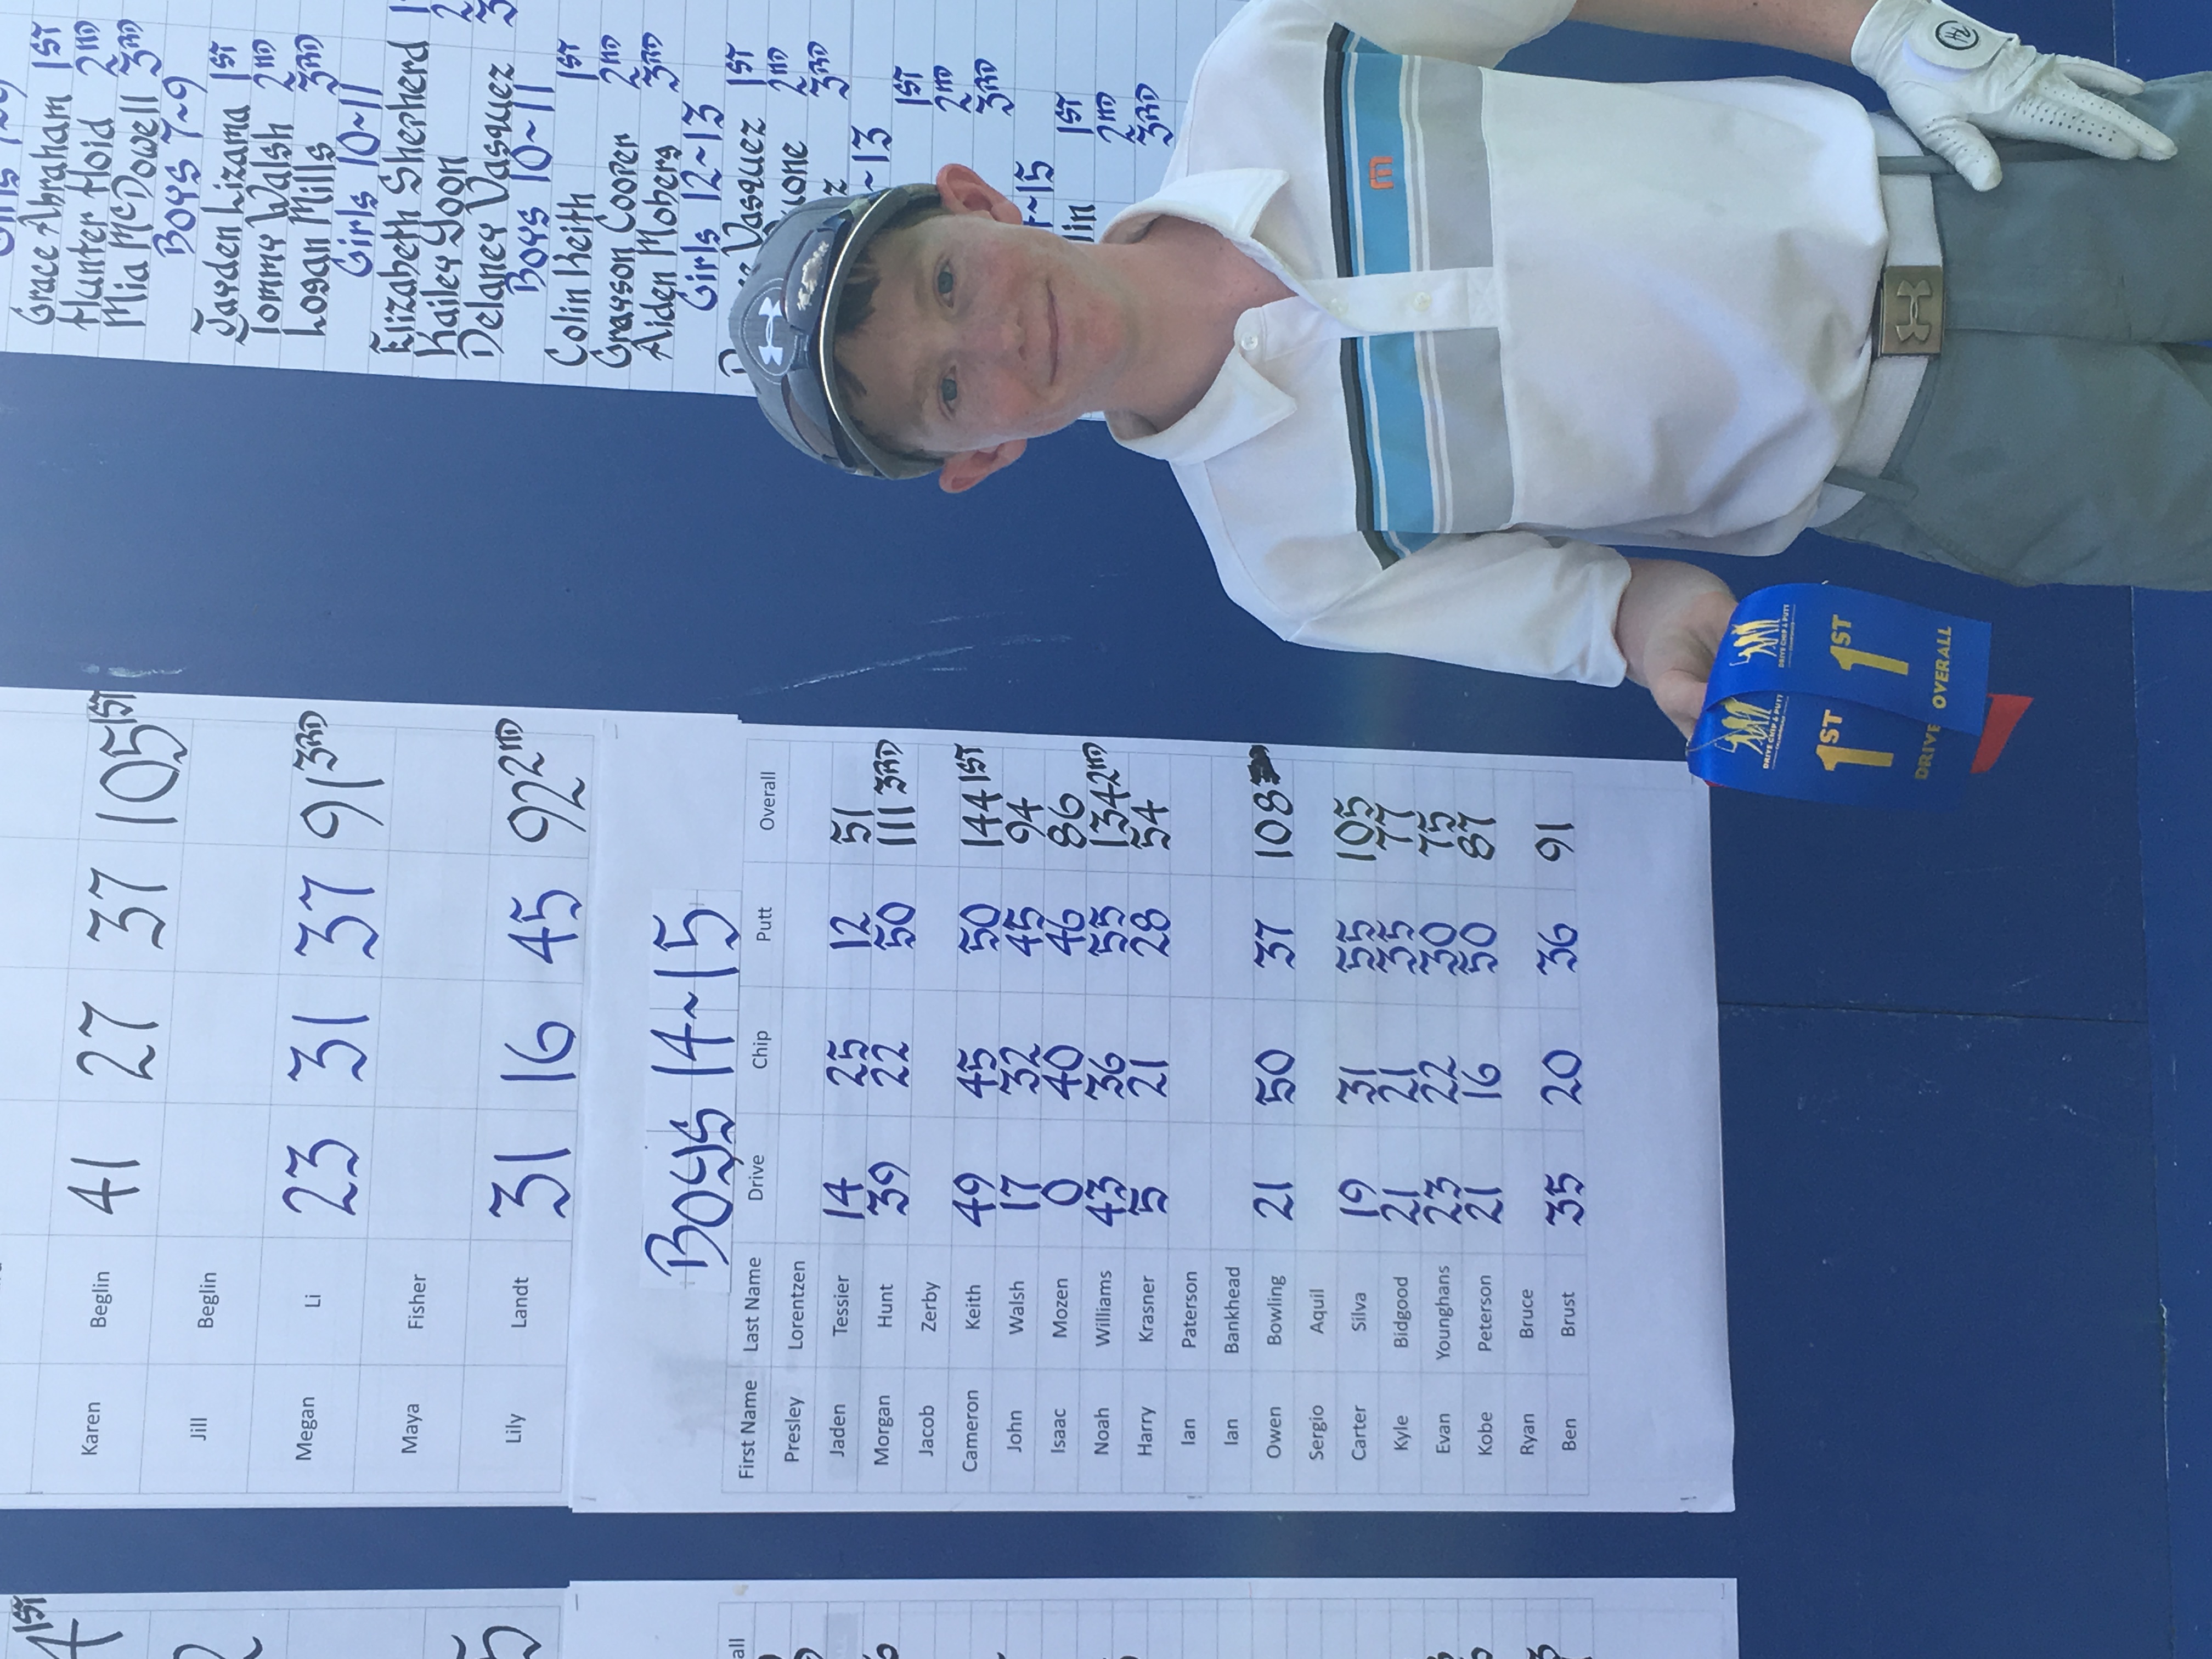 41 27 37 105 1ST
Karen Beglin
Jill Beglin
Megan Li 23 31 37 91 3RD
Maya Fisher
Lily Landt 31 16 45 92 2ND
Boys 14~15
First Name Last Name Drive Chip Putt Overall
Presley Lorentzen
Jaden Tessier 14 25 12 51
Morgan Hunt 39 22 50 111 3RD
Jacob Zerby
Cameron Keith 49 45 50 144 1ST
John Walsh 17 32 45 94
Isaac Mozen 0 40 46 86
Noah Williams 43 36 55 134 2ND
Harry Krasner 5 21 28 54
Ian Paterson
Ian Bankhead
Owen Bowling 21 50 37 108
Sergio Aquil
Carter Silva 19 31 55 105
Kyle Bidgood 21 21 35 77
Evan Younghans 23 22 30 75
Kobe Peterson 21 16 50 87
Ryan Bruce
Ben Brust 35 20 36 91
Grace Abraham 1ST
Hunter Hoid 2ND
Mia McDowell 3RD
Boys 7~9
Jayden Lizama 1ST
Tommy Walsh 2ND
Logan Mills 3RD
Girls 10~11
Elizabeth Shepherd
Kailey Yoon
Delaney Vasquez
Boys 10~11
Colin Keith 1ST
Grayson Cooper 2ND
Aiden Moberg 3RD
Girls 12~13
Vasquez 1ST
2ND
3RD
~13
1ST
2ND
3RD
~15
1ST
2ND
3RD
DRIVE CHIP & PUTT
1ST
DRIVE
DRIVE CHIP & PUTT
1ST
OVERALL